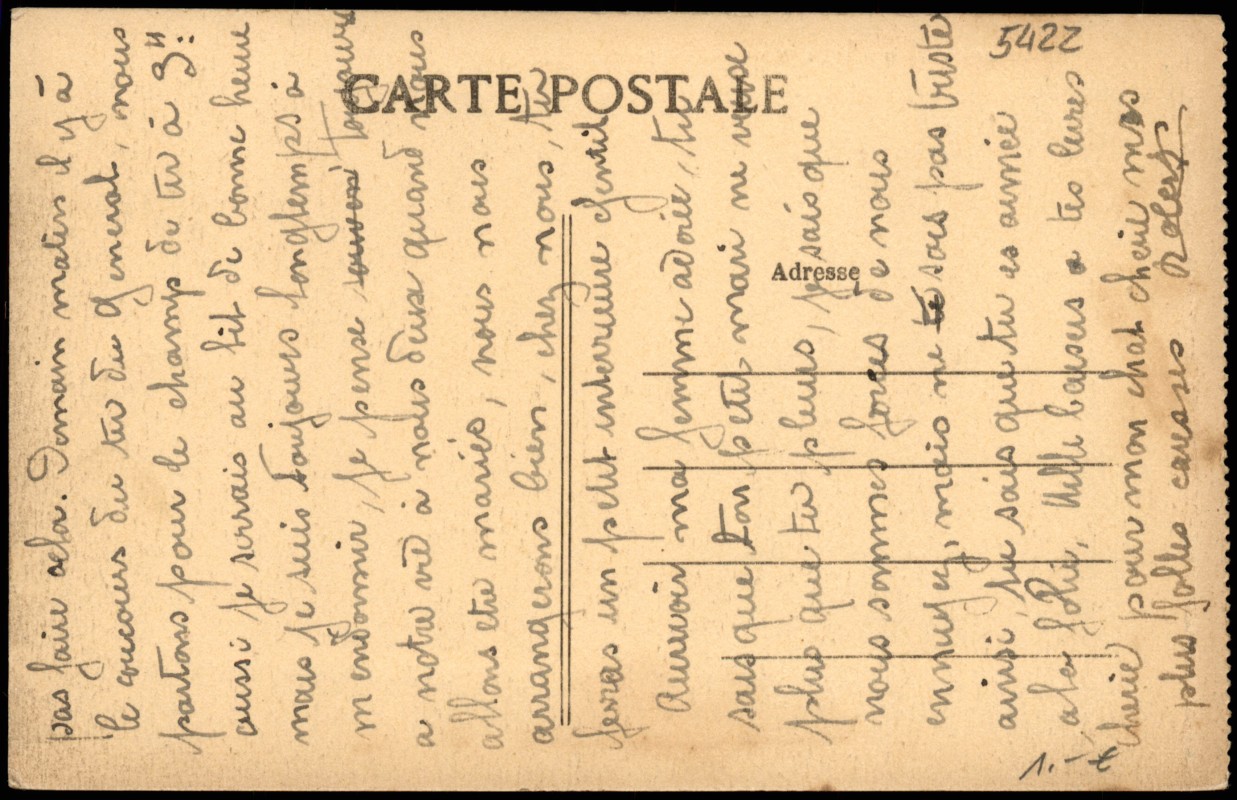 CARTE POSTALE
Adresse
5422
1.-€
pas faire cela. Demain matin il y à
le concours du tir du General, nous
partons pour le champs de tir à 3"
aussi je serrais au lit de bonne heure
mais je suis toujours longtemps à
m'endormir, je pense toujours
a notre vie à nous deux quand nous
allons etre mariés, nous nous
arrangerons bien, chez nous, tu
feras un petit interieure gentil
Aurevoir ma femme adorée, tu
sais que ton petit mari ne veux
plus que tu pleures, je sais que
nous sommes forcés de nous
ennuyez, mais ne sois pas triste
ainsi, je sais que tu es aimée
a la folie, Mille baisers a tes levres
cherie pour mon chat cherie mes
plus folles caresses